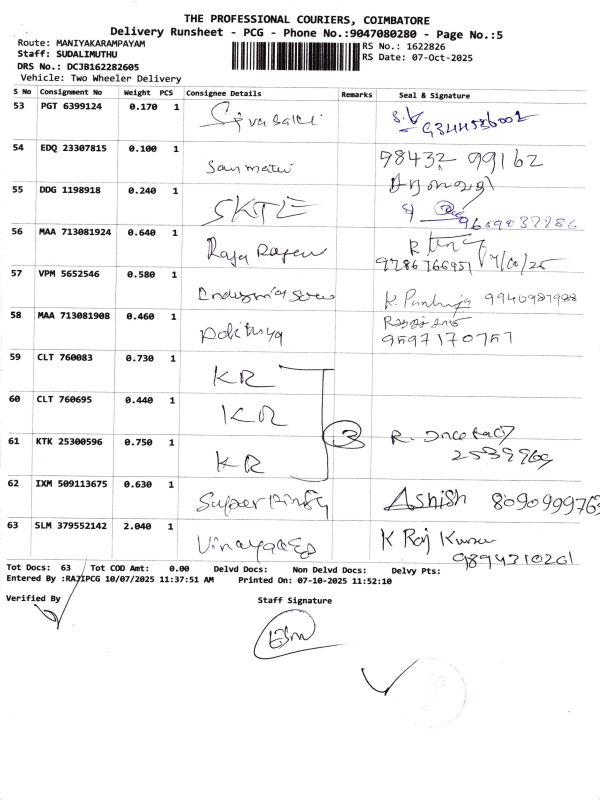 THE PROFESSIONAL COURIERS, COIMBATORE
Delivery Runsheet - PCG - Phone No.:9047080280 - Page No.:5
Route: MANIYAKARAMPAYAM
Staff: SUDALIMUTHU
RS No.: 1622826
RS Date: 07-Oct-2025
DRS No.: DCJB162282605
Vehicle: Two Wheeler Delivery
S No Consignment No Weight PCS Consignee Details Remarks Seal & Signature
53 PGT 6399124 0.170 1
54 EDQ 23307815 0.100 1 98432 99162
55 DDG 1198918 0.240 1 SKTE
56 MAA 713081924 0.640 1 Raja
9786766951
57 VPM 5652546 0.580 1 9940987988
58 MAA 713081908 0.460 1 Adithya
9597170757
59 CLT 760083 0.730 1 KR
60 CLT 760695 0.440 1 KR
61 KTK 25300596 0.750 1 KR 3 R.
62 IXM 509113675 0.630 1 Super Ashish
63 SLM 379552142 2.040 1 K Raj Kumar
9894310261
Tot Docs: 63 Tot COD Amt: 0.00 Delvd Docs: Non Delvd Docs: Delvy Pts:
Entered By :RAJIPCG 10/07/2025 11:37:51 AM Printed On: 07-10-2025 11:52:10
Verified By
Staff Signature